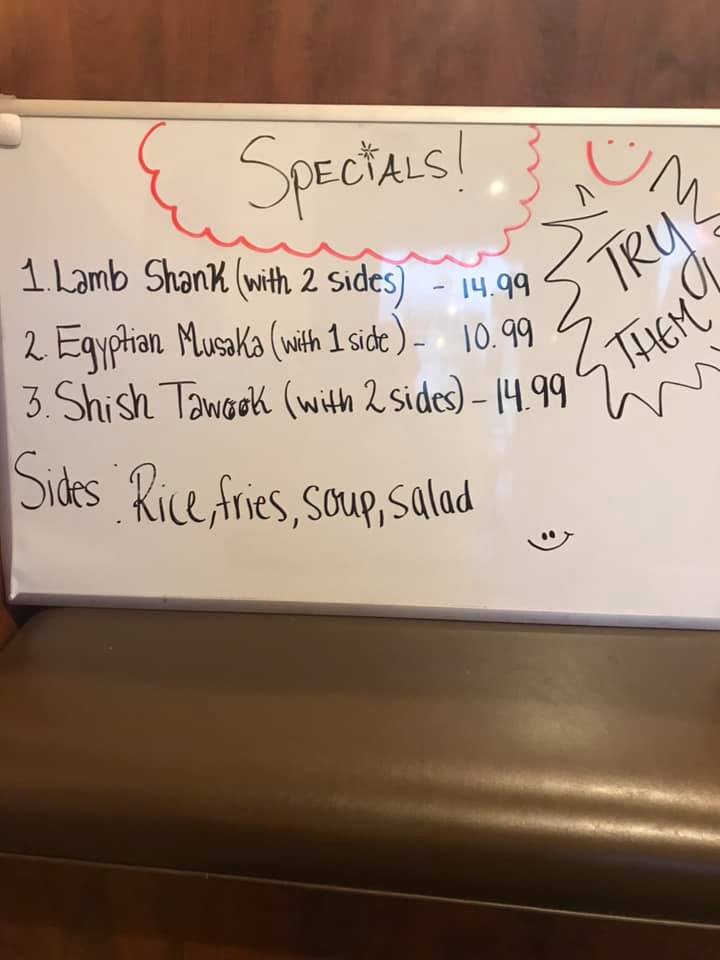 SPECIALS!
1. Lamb Shank (with 2 sides) - 14.99
2. Egyptian Musaka (with 1 side) - 10.99
3. Shish Tawook (with 2 sides) - 14.99
Sides: Rice, fries, soup, salad
TRY
THEM